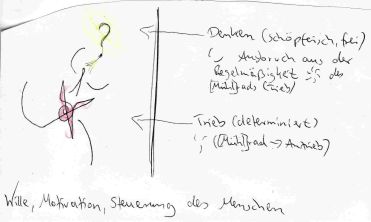 ?
Denken (schöpferisch, frei)
Ausbruch aus der
Regelmäßigkeit des
[Mühl]rads (Trieb)
Trieb (determiniert)
([Mühl]rad → Antrieb)
Wille, Motivation, Steuerung des Menschen